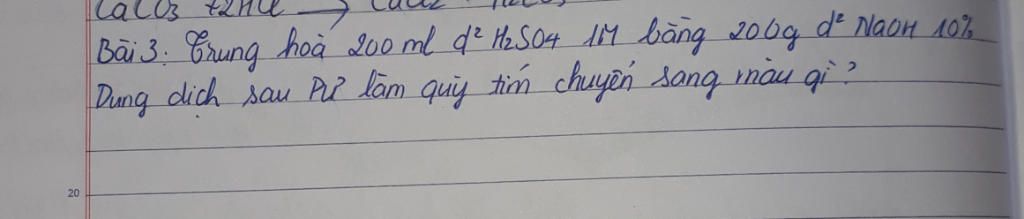 CaCO3 + 2HCl → CaCl2 H2CO3
Bài 3: Trung hoà 200 ml d² H2SO4 1M bằng 200g d² NaOH 10%
Dung dịch sau PƯ làm quỳ tím chuyển sang màu gì?
20